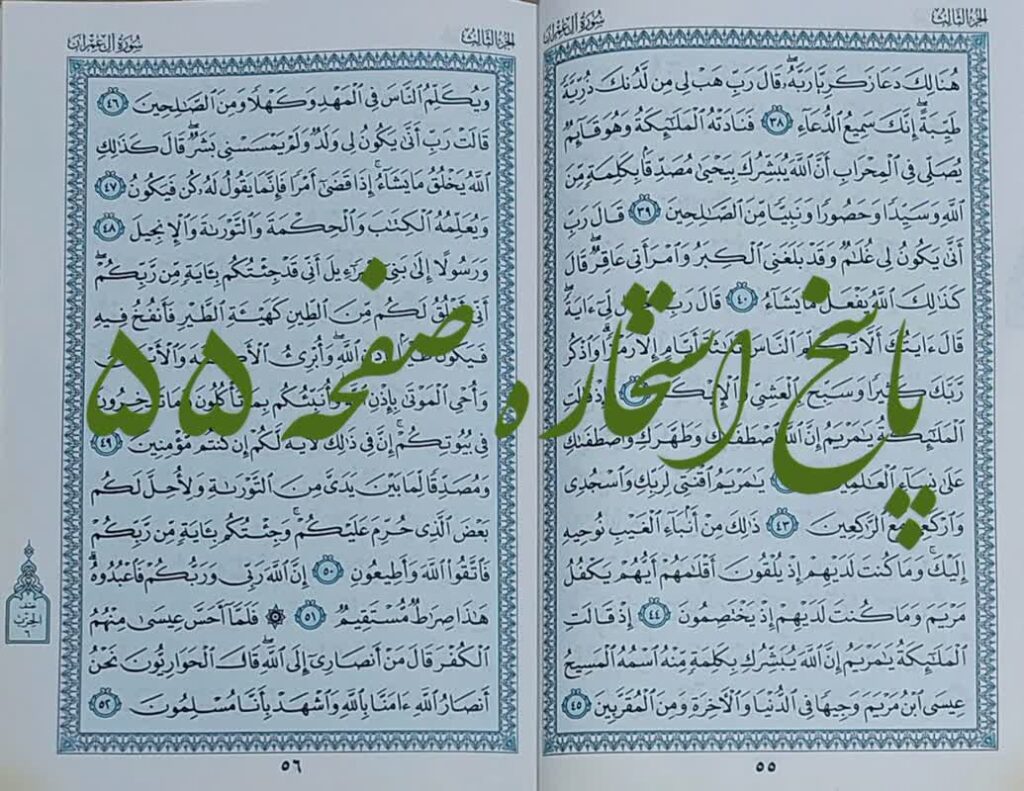 الجزء الثالث
سورة آل عمران
هُنَالِكَ دَعَا زَكَرِيَّا رَبَّهُۥ قَالَ رَبِّ هَبْ لِى مِن لَّدُنكَ ذُرِّيَّةً
طَيِّبَةً إِنَّكَ سَمِيعُ ٱلدُّعَآءِ ٣٨ فَنَادَتْهُ ٱلْمَلَٰٓئِكَةُ وَهُوَ قَآئِمٌ
يُصَلِّى فِى ٱلْمِحْرَابِ أَنَّ ٱللَّهَ يُبَشِّرُكَ بِيَحْيَىٰ مُصَدِّقًۢا بِكَلِمَةٍ مِّنَ
ٱللَّهِ وَسَيِّدًا وَحَصُورًا وَنَبِيًّا مِّنَ ٱلصَّٰلِحِينَ ٣٩ قَالَ رَبِّ
أَنَّىٰ يَكُونُ لِى غُلَٰمٌ وَقَدْ بَلَغَنِىَ ٱلْكِبَرُ وَٱمْرَأَتِى عَاقِرٌ قَالَ
كَذَٰلِكَ ٱللَّهُ يَفْعَلُ مَا يَشَآءُ ٤٠ قَالَ رَبِّ لِّىٓ ءَايَةً
قَالَ ءَايَتُكَ أَلَّا تُكَلِّمَ ٱلنَّاسَ ثَلَٰثَةَ أَيَّامٍ إِلَّا رَمْزًا وَٱذْكُر
رَّبَّكَ كَثِيرًا وَسَبِّحْ بِٱلْعَشِىِّ وَٱلْإِبْكَٰرِ وَإِذْ قَالَتِ
ٱلْمَلَٰٓئِكَةُ يَٰمَرْيَمُ إِنَّ ٱللَّهَ ٱصْطَفَىٰكِ وَطَهَّرَكِ وَٱصْطَفَىٰكِ
عَلَىٰ نِسَآءِ ٱلْعَٰلَمِينَ يَٰمَرْيَمُ ٱقْنُتِى لِرَبِّكِ وَٱسْجُدِى
وَٱرْكَعِى مَعَ ٱلرَّٰكِعِينَ ٤٣ ذَٰلِكَ مِنْ أَنۢبَآءِ ٱلْغَيْبِ نُوحِيهِ
إِلَيْكَ وَمَا كُنتَ لَدَيْهِمْ إِذْ يُلْقُونَ أَقْلَٰمَهُمْ أَيُّهُمْ يَكْفُلُ
مَرْيَمَ وَمَا كُنتَ لَدَيْهِمْ إِذْ يَخْتَصِمُونَ ٤٤ إِذْ قَالَتِ
ٱلْمَلَٰٓئِكَةُ يَٰمَرْيَمُ إِنَّ ٱللَّهَ يُبَشِّرُكِ بِكَلِمَةٍ مِّنْهُ ٱسْمُهُ ٱلْمَسِيحُ
عِيسَى ٱبْنُ مَرْيَمَ وَجِيهًا فِى ٱلدُّنْيَا وَٱلْءَاخِرَةِ وَمِنَ ٱلْمُقَرَّبِينَ ٤٥
٥٥
الجزء الثالث
سورة آل عمران
وَيُكَلِّمُ ٱلنَّاسَ فِى ٱلْمَهْدِ وَكَهْلًا وَمِنَ ٱلصَّٰلِحِينَ ٤٦
قَالَتْ رَبِّ أَنَّىٰ يَكُونُ لِى وَلَدٌ وَلَمْ يَمْسَسْنِى بَشَرٌ قَالَ كَذَٰلِكِ
ٱللَّهُ يَخْلُقُ مَا يَشَآءُ إِذَا قَضَىٰٓ أَمْرًا فَإِنَّمَا يَقُولُ لَهُۥ كُن فَيَكُونُ ٤٧
وَيُعَلِّمُهُ ٱلْكِتَٰبَ وَٱلْحِكْمَةَ وَٱلتَّوْرَىٰةَ وَٱلْإِنجِيلَ ٤٨
وَرَسُولًا إِلَىٰ بَنِىٓ إِسْرَٰٓءِيلَ أَنِّى قَدْ جِئْتُكُم بِـَٔايَةٍ مِّن رَّبِّكُمْ
أَنِّىٓ أَخْلُقُ لَكُم مِّنَ ٱلطِّينِ كَهَيْـَٔةِ ٱلطَّيْرِ فَأَنفُخُ فِيهِ
فَيَكُونُ طَيْرًۢا بِإِذْنِ ٱللَّهِ وَأُبْرِئُ ٱلْأَكْمَهَ وَٱلْأَبْرَصَ
وَأُحْىِ ٱلْمَوْتَىٰ بِإِذْنِ ٱللَّهِ وَأُنَبِّئُكُم بِمَا تَأْكُلُونَ وَمَا تَدَّخِرُونَ
فِى بُيُوتِكُمْ إِنَّ فِى ذَٰلِكَ لَءَايَةً لَّكُمْ إِن كُنتُم مُّؤْمِنِينَ ٤٩
وَمُصَدِّقًا لِّمَا بَيْنَ يَدَىَّ مِنَ ٱلتَّوْرَىٰةِ وَلِأُحِلَّ لَكُم
بَعْضَ ٱلَّذِى حُرِّمَ عَلَيْكُمْ وَجِئْتُكُم بِـَٔايَةٍ مِّن رَّبِّكُمْ
فَٱتَّقُوا۟ ٱللَّهَ وَأَطِيعُونِ ٥٠ إِنَّ ٱللَّهَ رَبِّى وَرَبُّكُمْ فَٱعْبُدُوهُ
هَٰذَا صِرَٰطٌ مُّسْتَقِيمٌ ٥١ ۞ فَلَمَّآ أَحَسَّ عِيسَىٰ مِنْهُمُ
ٱلْكُفْرَ قَالَ مَنْ أَنصَارِىٓ إِلَى ٱللَّهِ قَالَ ٱلْحَوَارِيُّونَ نَحْنُ
أَنصَارُ ٱللَّهِ ءَامَنَّا بِٱللَّهِ وَٱشْهَدْ بِأَنَّا مُسْلِمُونَ ٥٢
نصف
الحزب
٦
٥٦
پاسخ استخاره صفحه ۵۵